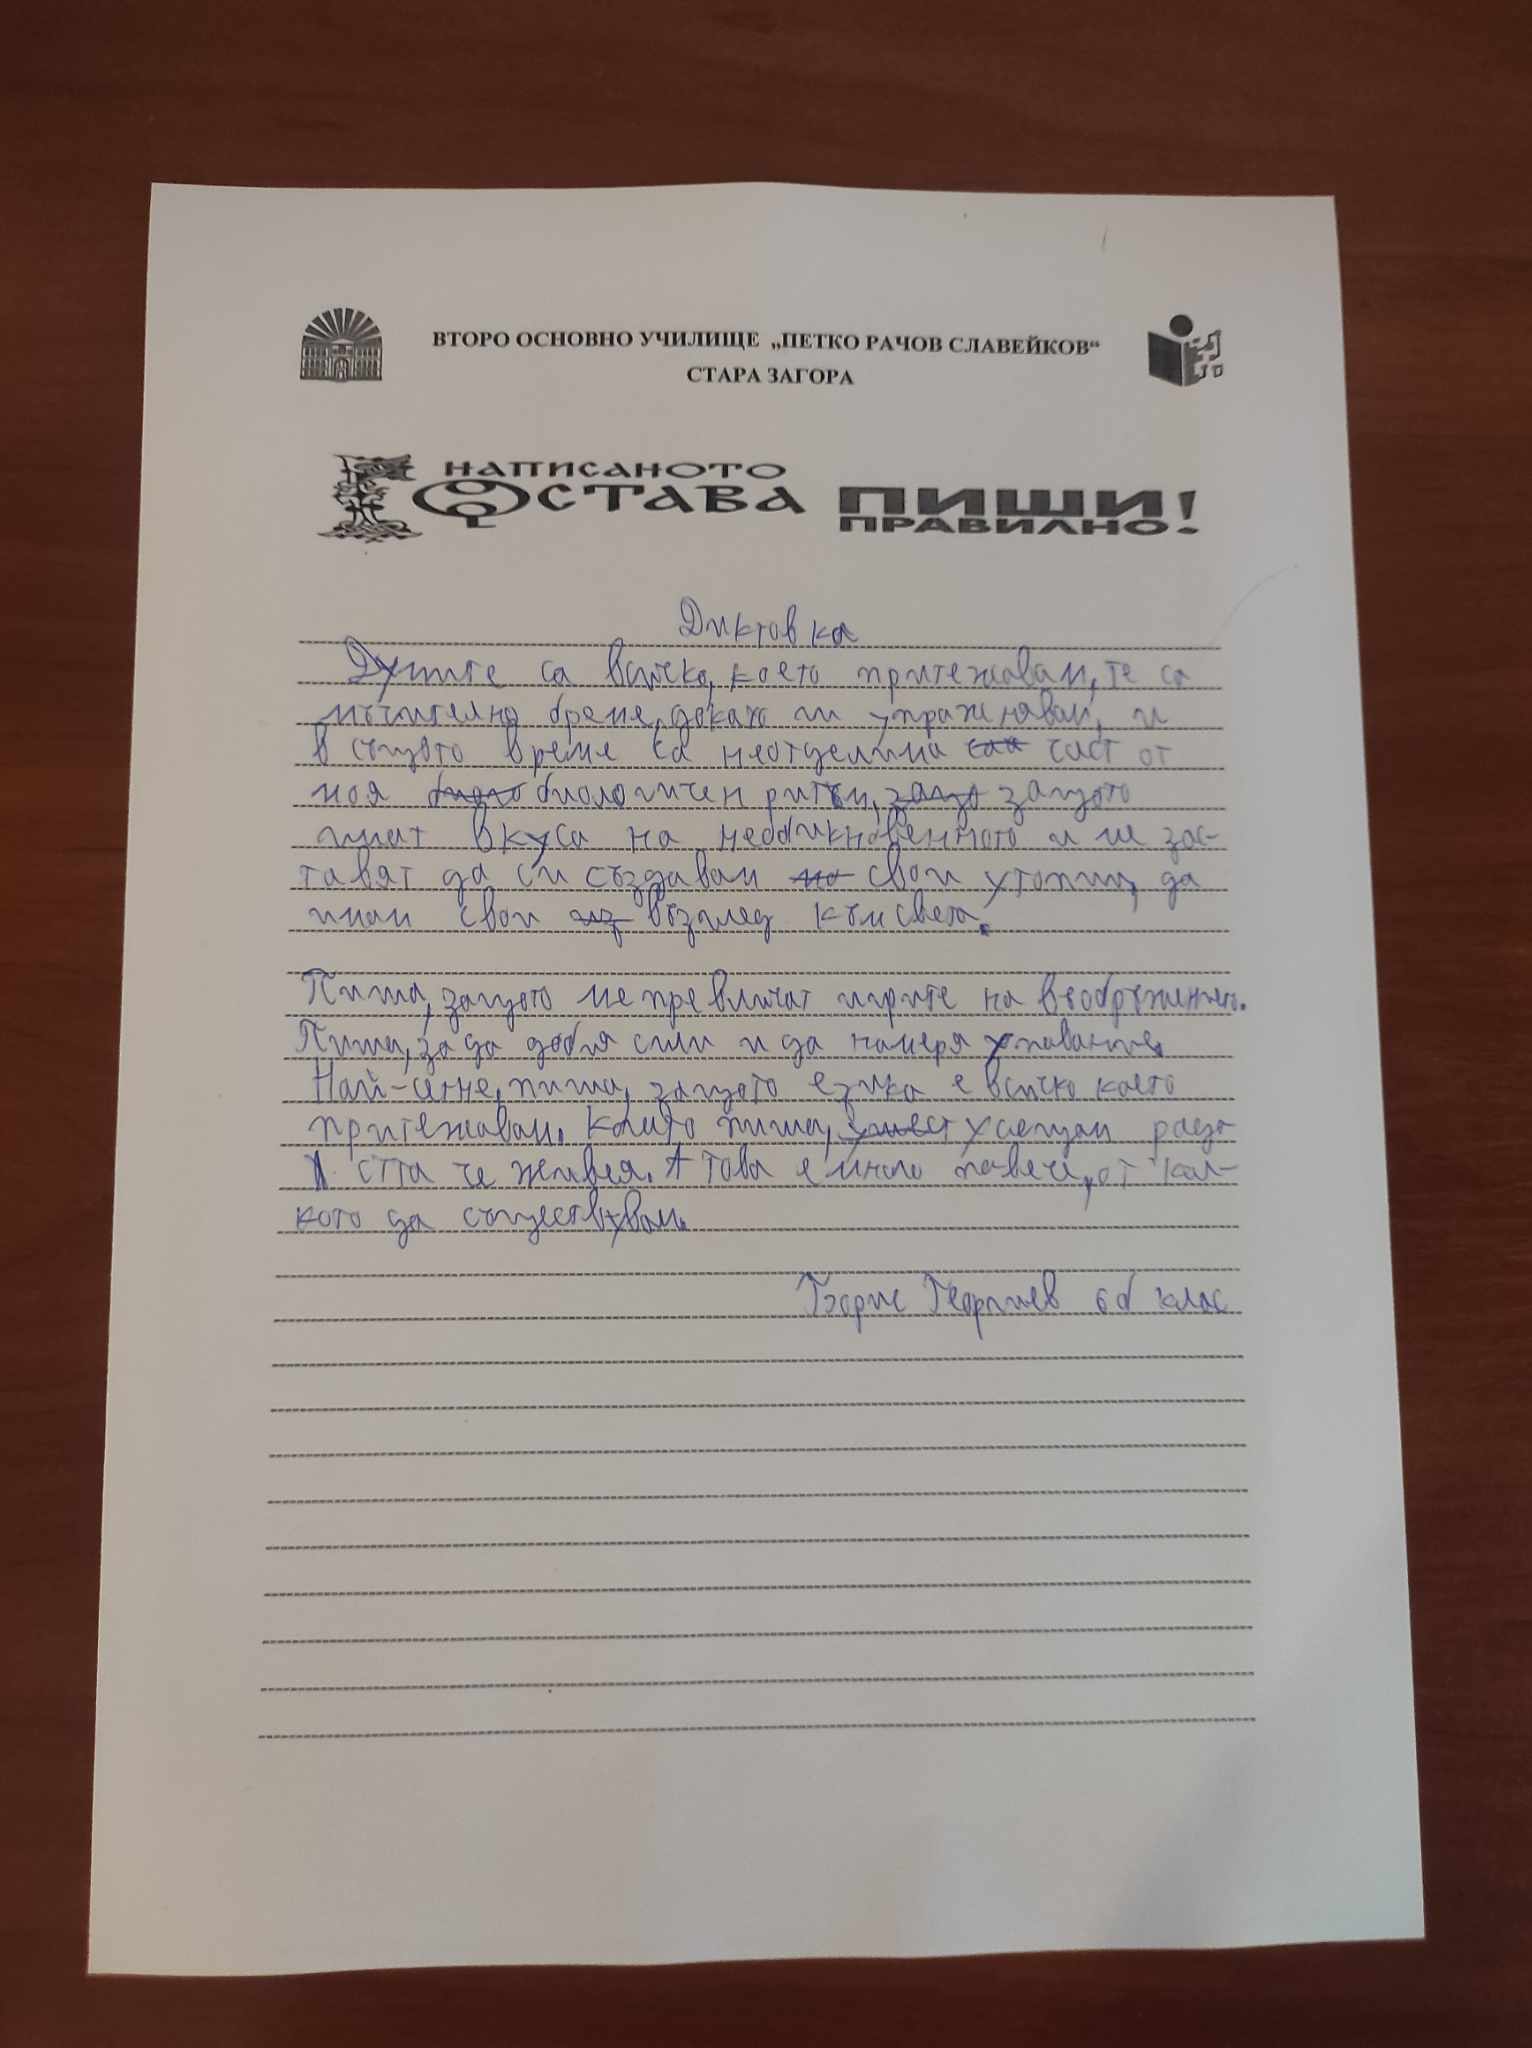 ВТОРО ОСНОВНО УЧИЛИЩЕ „ПЕТКО РАЧОВ СЛАВЕЙКОВ“
СТАРА ЗАГОРА
НАПИСАНОТО
ОСТАВА
ПИШИ!
ПРАВИЛНО!
Диктовка
Думите са всичко, което притежавам, те са
мъчително бреме, докато ги упражнявам, и
в същото време са неотделима част от
моя биологичен ритъм, защото
имат вкуса на необикновенното и ме зас-
тавят да си създавам свои утопии, да
имам свои възглед към света.
Пиша, защото ме превличат игрите на въображението.
Пиша, за да добия сили и да намеря упование.
Най-сетне, пиша, защото езика е всичко което
притежавам. Когато пиша, усещам радо-
стта че живея. А това е много повече, от кол-
кото да съществувам.
Борис Георгиев 6б клас